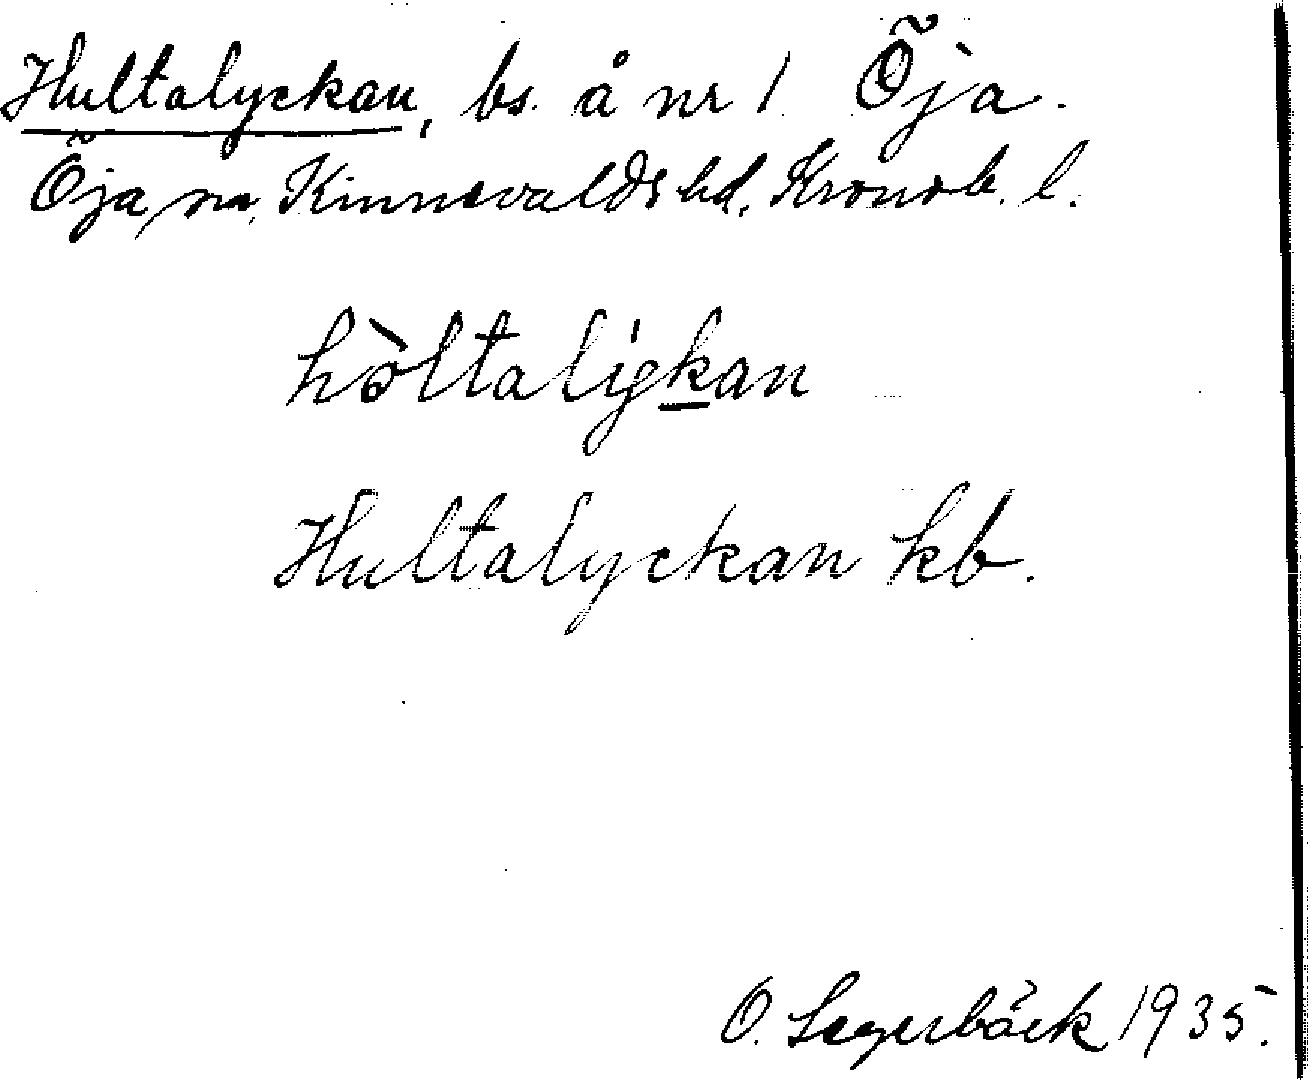 Hultalyckan, bs. å nr 1 Öja.
Öja sn, Kinnevalds hd, Kronob. l.
hòltalígkan
Hultalyckan kb.
O. Segerbäck 1935.